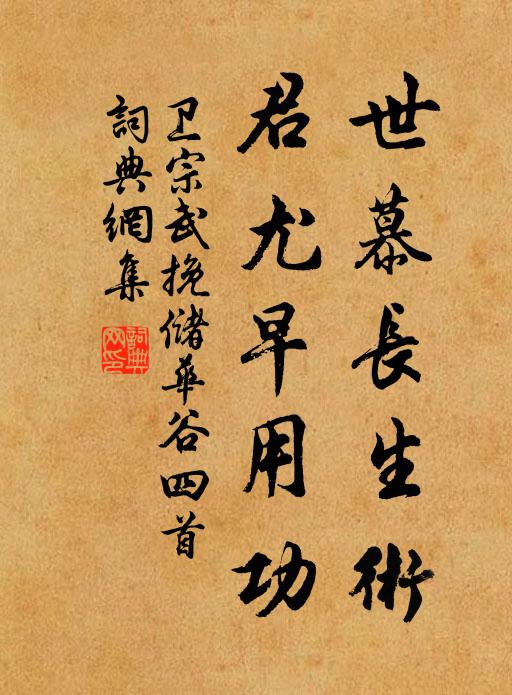 世慕長生術
君尤早用功
卫宗武挽儲華谷四首
詞典網集
詞典网印